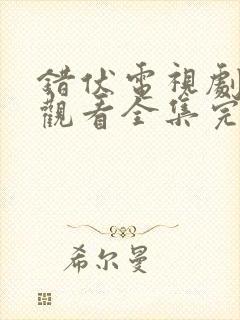 錯伏電視劇
觀看全集完
希尔曼